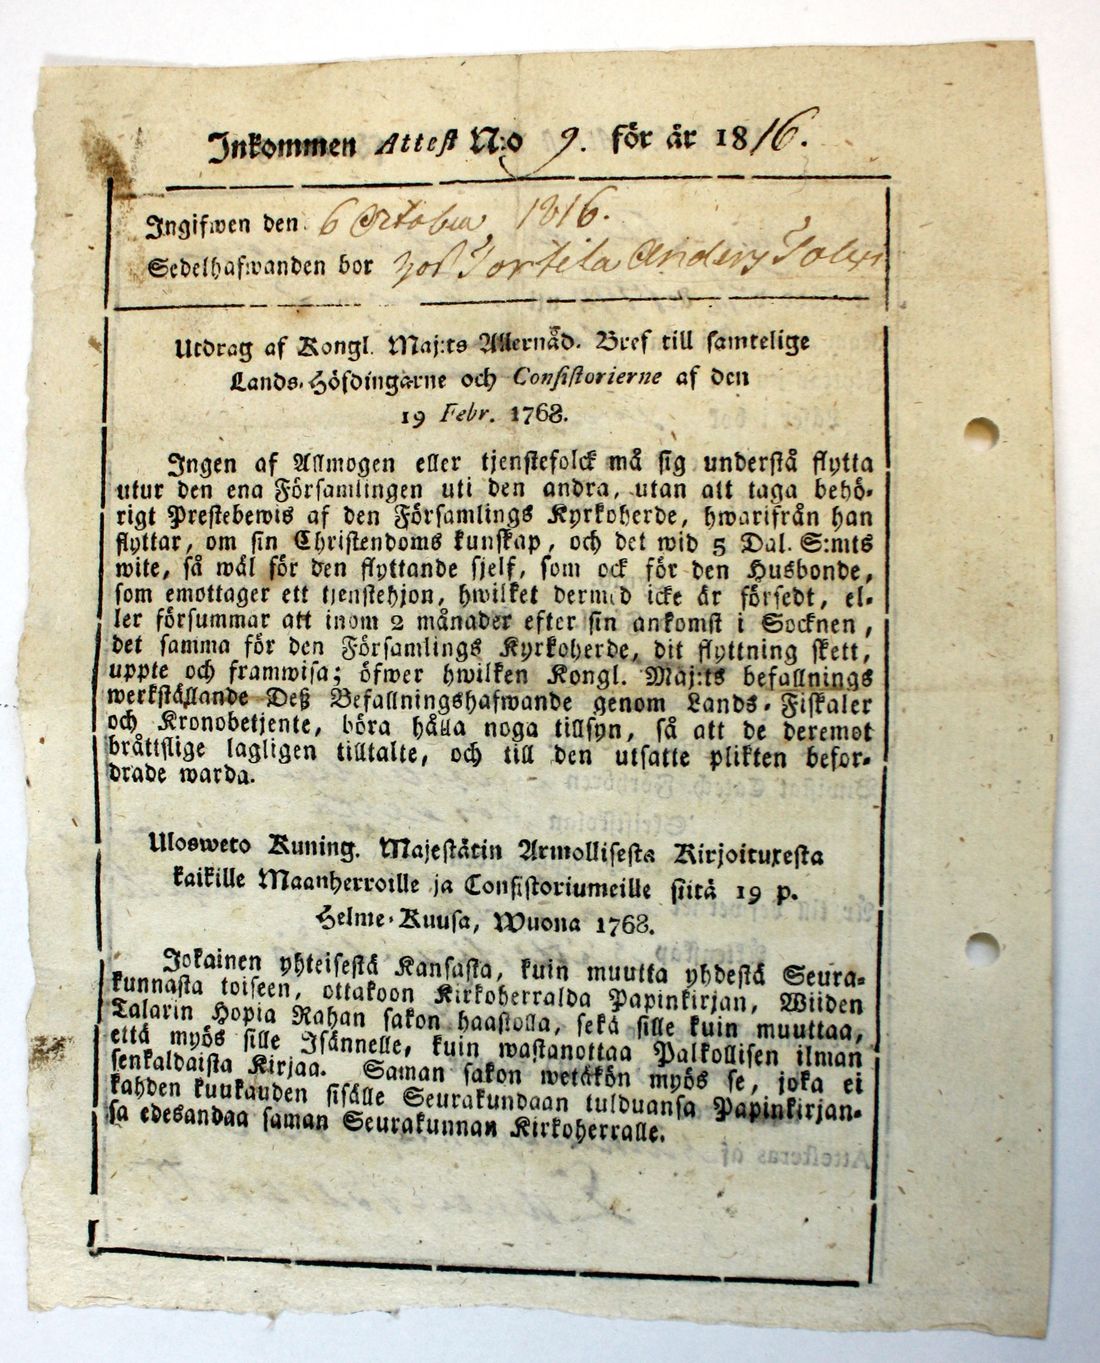 Inkommen Attest N:o 9. för år 1816.
Ingifwen den 6 October 1816.
Sedelhafwanden bor hos Tortila Anders
Utdrag af Kongl. Maj:ts Allernåd. Bref till samtelige
Lands-Höfdingarne och Consistorierne af den
19 Febr. 1768.
Ingen af Allmogen eller tjenstefolck må sig understå flytta
utur den ena Församlingen uti den andra, utan att taga behö-
rigt Prestebewis af den Församlings Kyrkoherde, hwarifrån han
flyttar, om sin Christendoms kunskap, och det wid 5 Dal. S:mts
wite, så wäl för den flyttande sjelf, som ock för den Husbonde,
som emottager ett tjenstehjon, hwilket dermed icke är försedt, el-
ler försummar att inom 2 månader efter sin ankomst i Socknen,
det samma för den Församlings Kyrkoherde, dit flyttning skett,
uppte och framwisa; öfwer hwilken Kongl. Maj:ts befallnings
werkställande Deß Befallningshafwande genom Lands-Fiskaler
och Kronobetjente, böra hålla noga tillsyn, så att de deremot
bråttslige lagligen tilltalte, och till den utsatte plikten befor-
drade warda.
Ulosweto Kuning. Majestätin Armollisesta Kirjoituxesta
kaikille Maanherroille ja Consistoriumeille siitä 19 p.
Helme-Kuusa, Wuona 1768.
Jokainen yhteisestä Kansasta, kuin muutta yhdestä Seura-
kunnasta toiseen, ottakoon Kirkoherralda Papinkirjan, Wiiden
Talarin Hopia Rahan sakon haastolla, sekä sille kuin muuttaa,
että myös sille Isännelle, kuin wastanottaa Palkollisen ilman
senkaldaista Kirjaa. Saman sakon wetäkön myös se, joka ei
kahden kuukauden sisälle Seurakundaan tulduansa Papinkirjan-
sa edesandaa saman Seurakunnan Kirkoherralle.